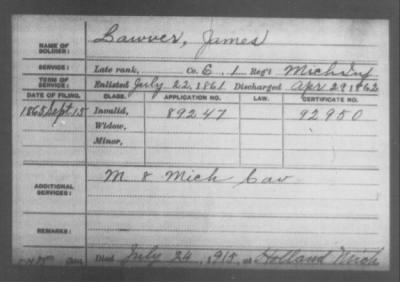 NAME OF SOLDIER: Lawver, James
SERVICE: Late rank, Co. G, 1 Reg't Mich Inf
TERM OF SERVICE: Enlisted July 22, 1861 Discharged Apr 29 1862
DATE OF FILING. CLASS. APPLICATION NO. LAW. CERTIFICATE NO.
1868 Sept 15 Invalid, 89247 92950
Widow,
Minor,
ADDITIONAL SERVICES: M 8 Mich Cav
REMARKS:
Died July 24, 1915 at Holland Mich